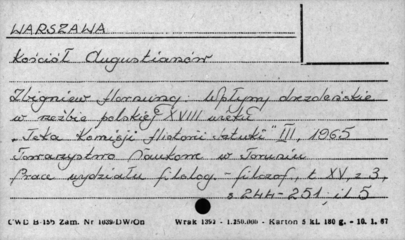 WARSZAWA
Kościół Augustianów
Zbigniew Hornung: Wpływy drezdeńskie
w rzeźbie polskiej XVIII wieku
„Teka Komisji Historii Sztuki" III, 1965
Towarzystwo Naukow. w Toruniu
Prace wydziału filolog.-filozof., t XV, z 3,
s 244-251, il 5
CWD B-155 Zam. Nr 1029/DW/On Wrak 1393 - 1.250.000 - Karton 5 kl. 180 g. - 10.1.67